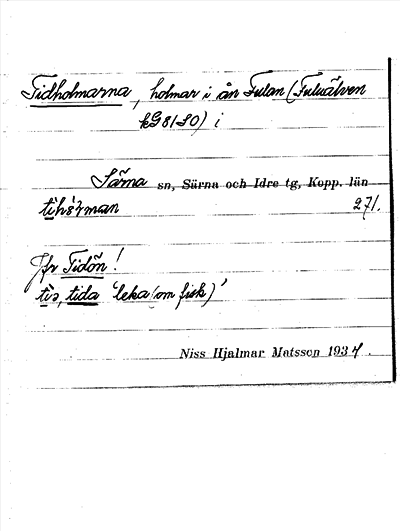 Tidholmarna, holmar i ån Fulan (Fuluälven
i
Särna sn, Särna och Idre tg, Kopp. län
271.
Jfr Tidön!
tis, tida 'leka (om fisk)'
Niss Hjalmar Matsson 1937.